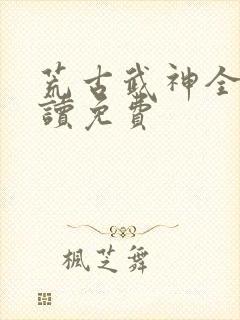 荒古武神全
讀免費
楓芝舞